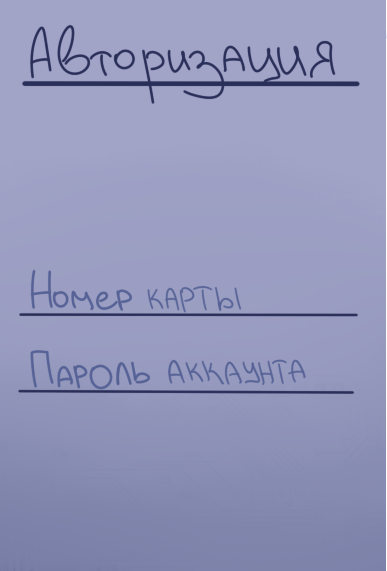 Авторизация
Номер карты
Пароль аккаунта